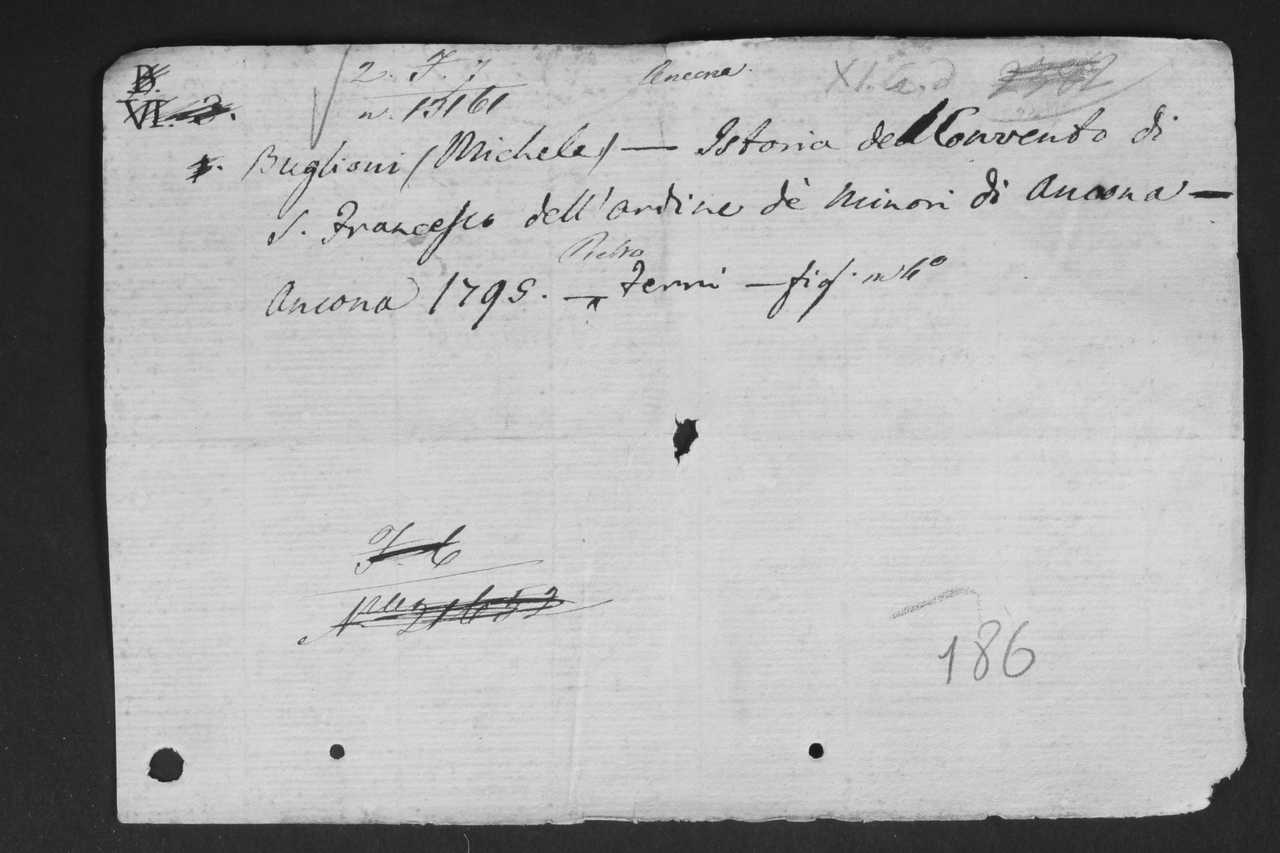 B.
VI. 3.
2. F. 7
n. 13161
Ancona.
XI. a. d
Buglioni (Michele) — Istoria del Convento di
S. Francesco dell'ordine de' Minori di Ancona —
Pietro
Ancona 1795. — Ferri — fig. in 4º
F. 6
N.ro 21653
186